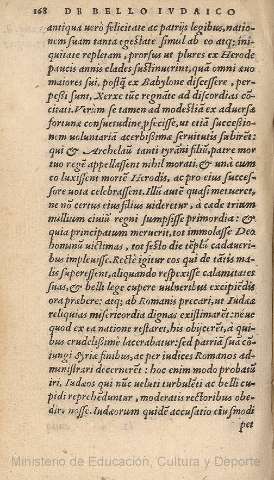 168 DE BELLO IVDAICO
antiqua uerò felicitate ac patrijs legibus, natio-
nem suam tanta egestate simul ab eo atq; ini-
quitate repletam, prorsus ut plures ex Herode
paucis annis clades sustinuerint, quàm omni æuo
maiores sui, postq̃ ex Babylone discessere, per-
pessi sunt, Xerxe iã regnãte ad discordias cõ-
citati. Verùm se tamen ad modestiã ex aduersæ
fortunæ consuetudine, pfecisse, ut etiã successio-
nem uoluntariã acerbissimæ seruitutis subirẽt:
qui & Archelaũ tanti tyrãni filiũ, patre mor
tuo regẽ appellassent nihil morati, & unà cum
eo luxissent mortẽ Herodis, ac pro eius succes-
sore uota celebrassent. Illũ autẽ quasi metueret,
ne nõ certus eius filius uideretur, à cæde trium
millium ciuiũ regni sumpsisse primordia: &
quia principatum meruerit, tot immolasse Deo
hominũ uictimas, tot festo die tẽplũ cadaueri-
bus impleuisse. Rectè igitur eos qui de tãtis ma-
lis superessent, aliquando respexisse calamitates
suas, & belli lege cupere uulneribus excipiẽdis
ora præbere: atq; ab Romanis precari, ut Iudææ
reliquias misericordia dignas existimarẽt: neue
quod ex ea natione restaret, his obijcerẽt, à qui-
bus crudelissimè lacerabatur: sed patriã suã cõ-
iungi Syriæ finibus, ac per iudices Romanos ad-
ministrari decernerẽt: hoc enim modo probatũ
iri, Iudæos qui nũc ueluti turbulẽti ac belli cu-
pidi reprehẽduntur, moderatis rectoribus obe-
dire nosse. Iudæorum quidẽ accusatio eiusmodi
pet
Ministerio de Educación, Cultura y Deporte